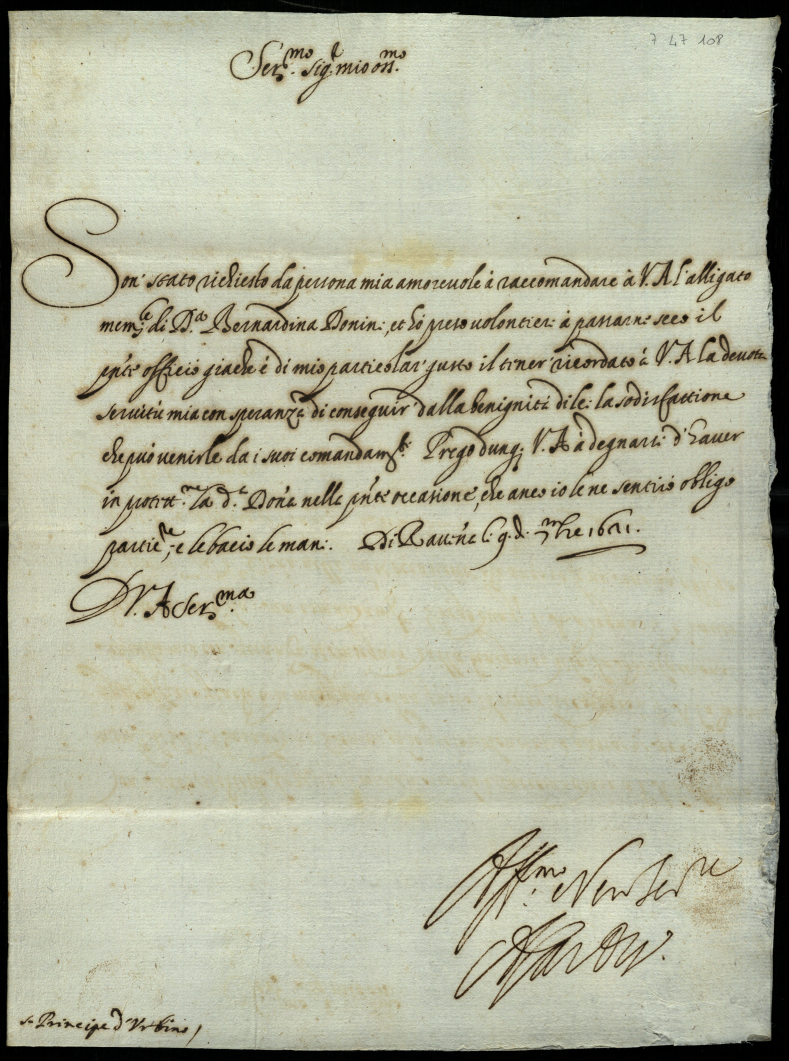 7 47 108
Ser.mo Sig.r mio oss.mo
Son' stato richiesto da persona mia amorevole à raccomandare à V.A l'alligato
mem.le di D.a Bernardina Donin: et hò preso volontieri à passarne seco il
pnte officio giache é di mio particolar' gusto il tener' ricordato à V.A la devota
servitù mia con speranza di conseguir' dalla benignità di lei la sodisfattione
che può venirle da i suoi comandam.ti Prego dunq; V.A à degnarsi d'haver
in protett.ne la d.a Dona nella pnte occasione, che anco io le ne sentirò obligo
partic.re, e le bacio le mani. Di Ravena li 9. d. 7mbre 1621.
D V.A Ser.ma
Aff.mo Ser.re
s.r Principe d'Urbino